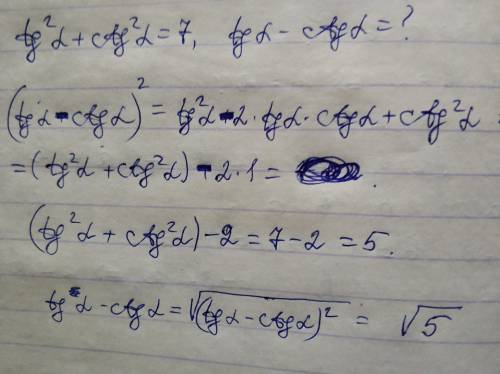 tg²α + ctg²α = 7, tgα - ctgα = ?
(tgα - ctgα)² = tg²α - 2 · tgα · ctgα + ctg²α =
= (tg²α + ctg²α) - 2 · 1 =
(tg²α + ctg²α) - 2 = 7 - 2 = 5.
tgα - ctgα = √(tgα - ctgα)² = √5